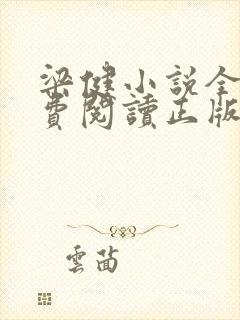 梁健小說全
費閱讀正版
雲茴